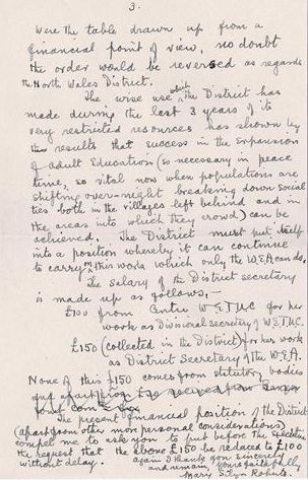 3.
were the table drawn up from a
financial point of view, no doubt
the order would be reversed as regards
the North Wales District.
The wise use which the District has
made during the last 3 years of its
very restricted resources has shown by
results that success in the expansion
of adult Education (so necessary in peace
time, so vital now when populations are
shifting over-night breaking down social
ties both in the villages left behind and in
the areas into which they crowd) can be
achieved. The District must put itself
into a position whereby it can continue
to carry on this work which only the W.E.A can do.
The salary of the District secretary
is made up as follows,—
£100 from Centre W.E.T.U.C for his
work as Divisional secretary of W.E.T.U.C.
£150 (collected in the District) for her work
as District Secretary of the W.E.A.
None of this £150 comes from statutory bodies
The present financial position of the District
(apart from other more personal considerations)
compel me to ask you to put before the
the request that the above £150 be reduced to £100
without delay. Again I thank you sincerely
and remain, yours faithfully,
Mary Silyn Roberts.